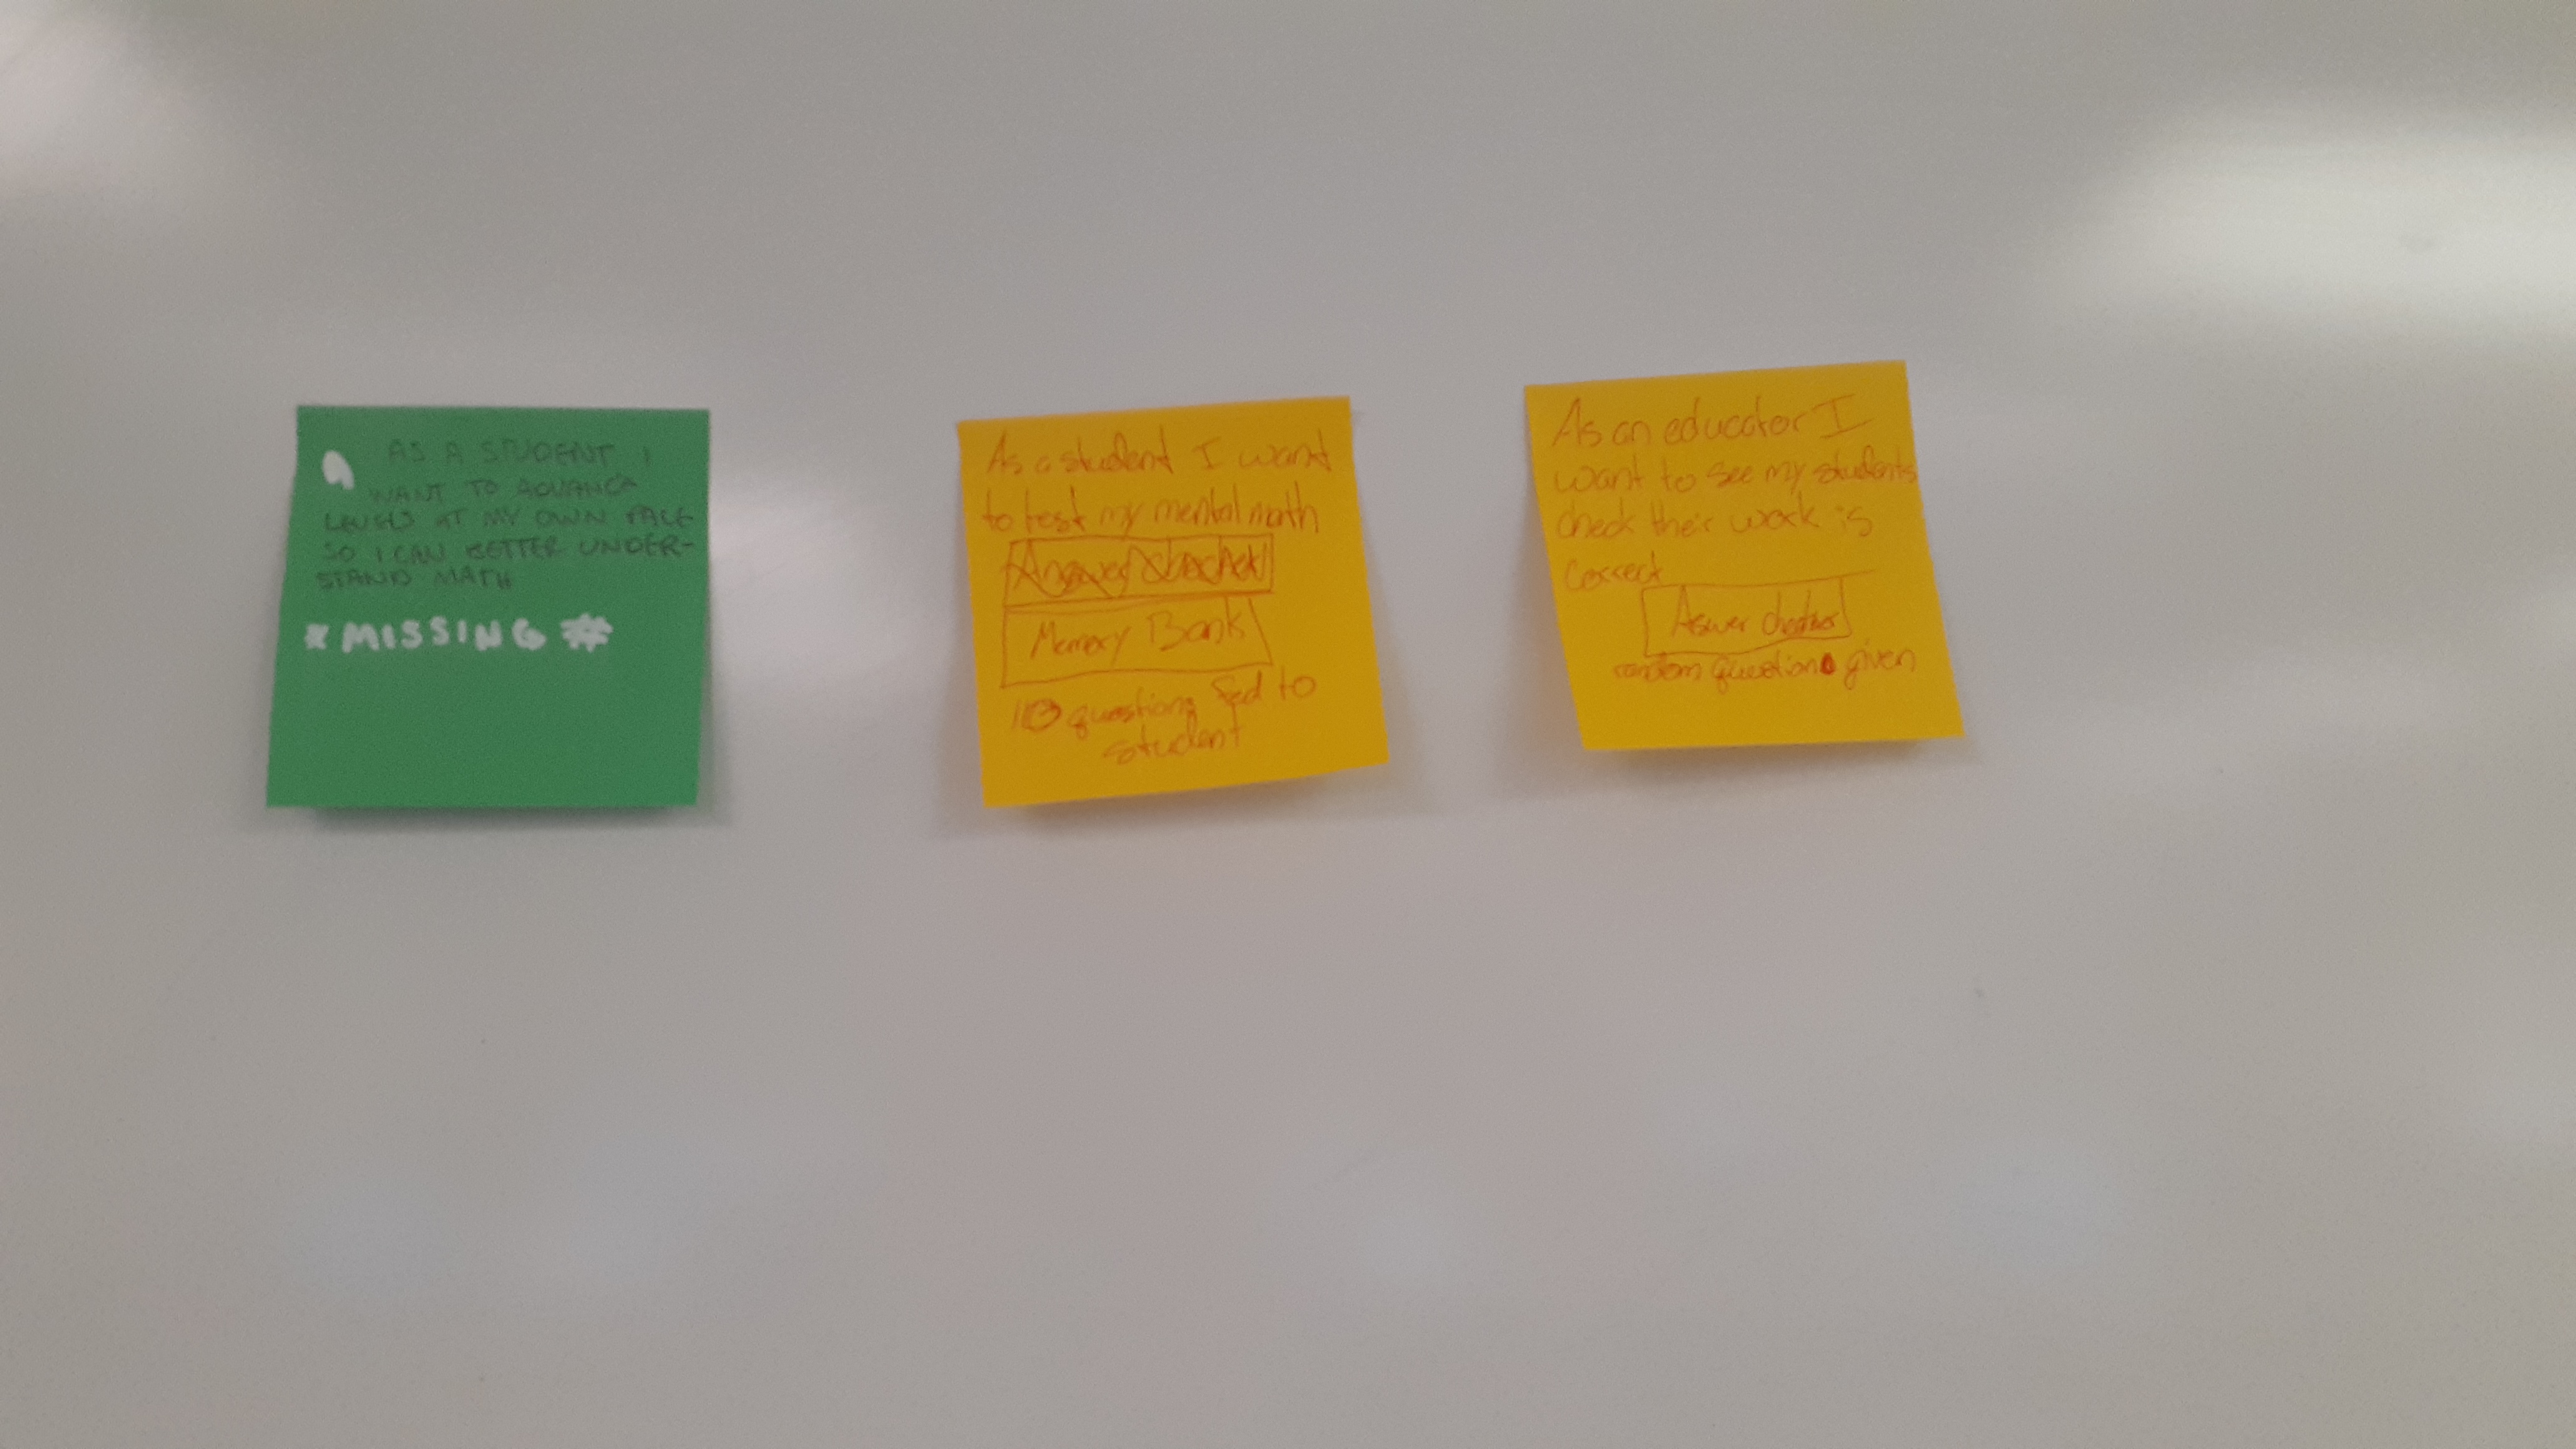 AS A STUDENT I
WANT TO ADVANCE
LEVELS AT MY OWN PACE
SO I CAN BETTER UNDER-
STAND MATH
* MISSING *
As a student I want
to test my mental math
Answer checker
Memory Bank
questions fed to
student
As an educator I
want to see my students
check their work is
correct
Aswer checker
random question given